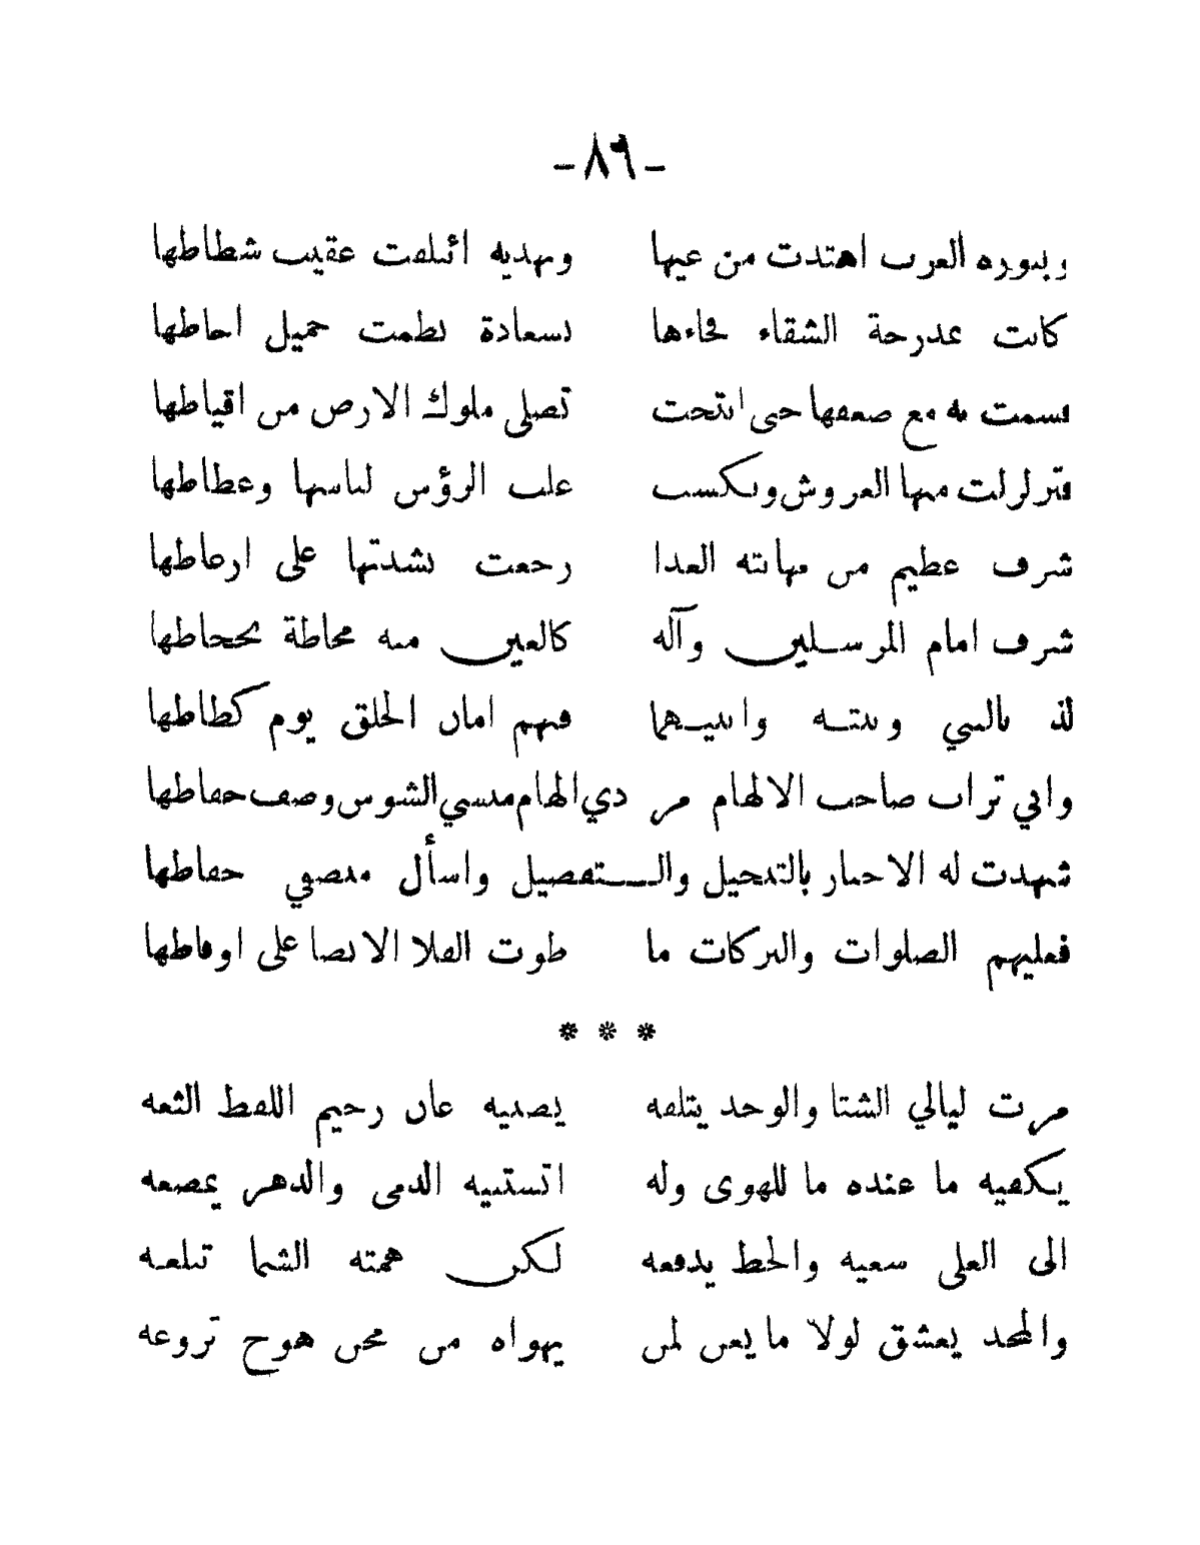 -٨٩-
وبنوره العرب اهتدت من غيها وبهديه ائتلفت عقيب شطاطها
كانت بمدرجة الشقاء فجاءها بسعادة نظمت جميل احاطها
فسمت به مع ضعفها حتى انتحت تصلي ملوك الارض من اقياطها
فتزلزلت منها العروش ونكست غلب الرؤس لباسها وعطاطها
شرف عظيم من مهابته العدا رجعت بشدتها على ارهاطها
شرف امام المرسلين وآله كالعين منه محاطة بحجاطها
لذ بالنبي وبنته وابنيهما فهم امان الخلق يوم كظاظها
وابي تراب صاحب الالهام مر دي الهام منسي الشوس وصف حفاظها
شهدت له الاخبار بالتبجيل والتفضيل واسأل منصفي حفاظها
فعليهم الصلوات والبركات ما طوت الفلا الانضا على اوفاظها
* * *
مرت ليالي الشتا والوجد يتلفه يصبيه غان رخيم اللفظ الثغه
يكفيه ما عنده ما للهوى وله اتستبيه الدمى والدهر يمضغه
الى العلى سعيه والحظ يدفعه لكن همته الشما تبلغه
والمجد يعشق لولا ما يعن لمن يهواه من محن هوج تروغه